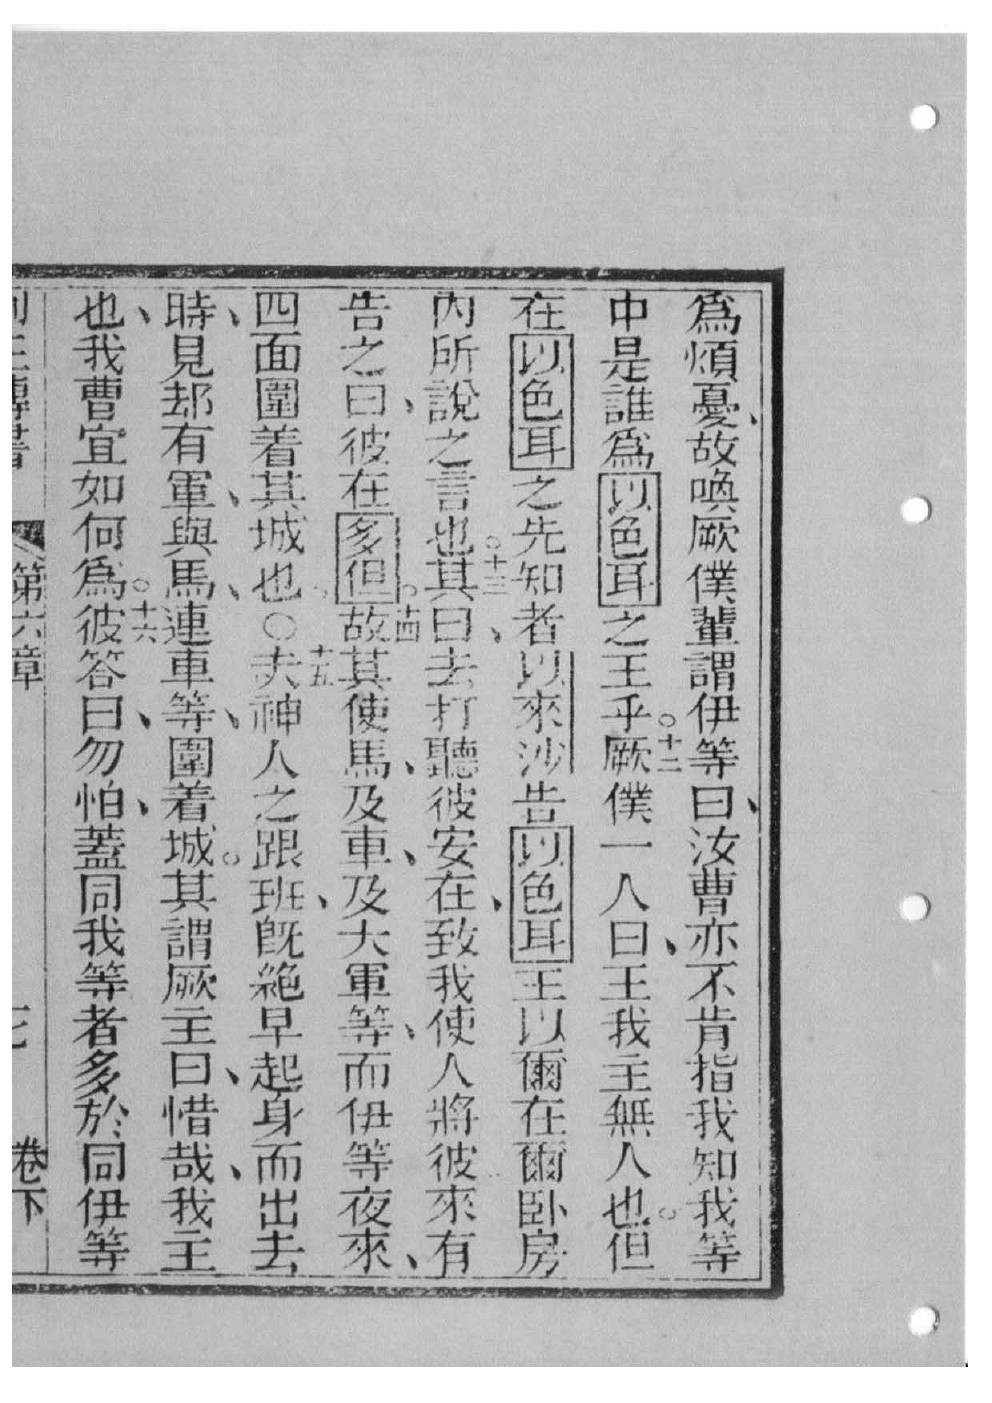 爲煩憂、故喚厥僕輩謂伊等曰、汝曹亦不肯指我知我等
中是誰爲以色耳之王乎。十二厥僕一人曰、王我主無人也。但
在以色耳之先知者以來沙告以色耳王以爾在爾臥房
內所說之言也。十三其曰、去打聽彼安在、致我使人將彼來有
告之曰、彼在多但。十四故其使馬、及車、及大軍等、而伊等夜來、
四面圍着其城也○十五夫神人之跟班、旣絶早起身而出去
時、見却有軍、與馬、連車等、圍着城。其謂厥主曰、惜哉、我主
也、我曹宜如何爲。十六彼答曰、勿怕、蓋同我等者多於同伊等
列王傳書 第六章 卷下